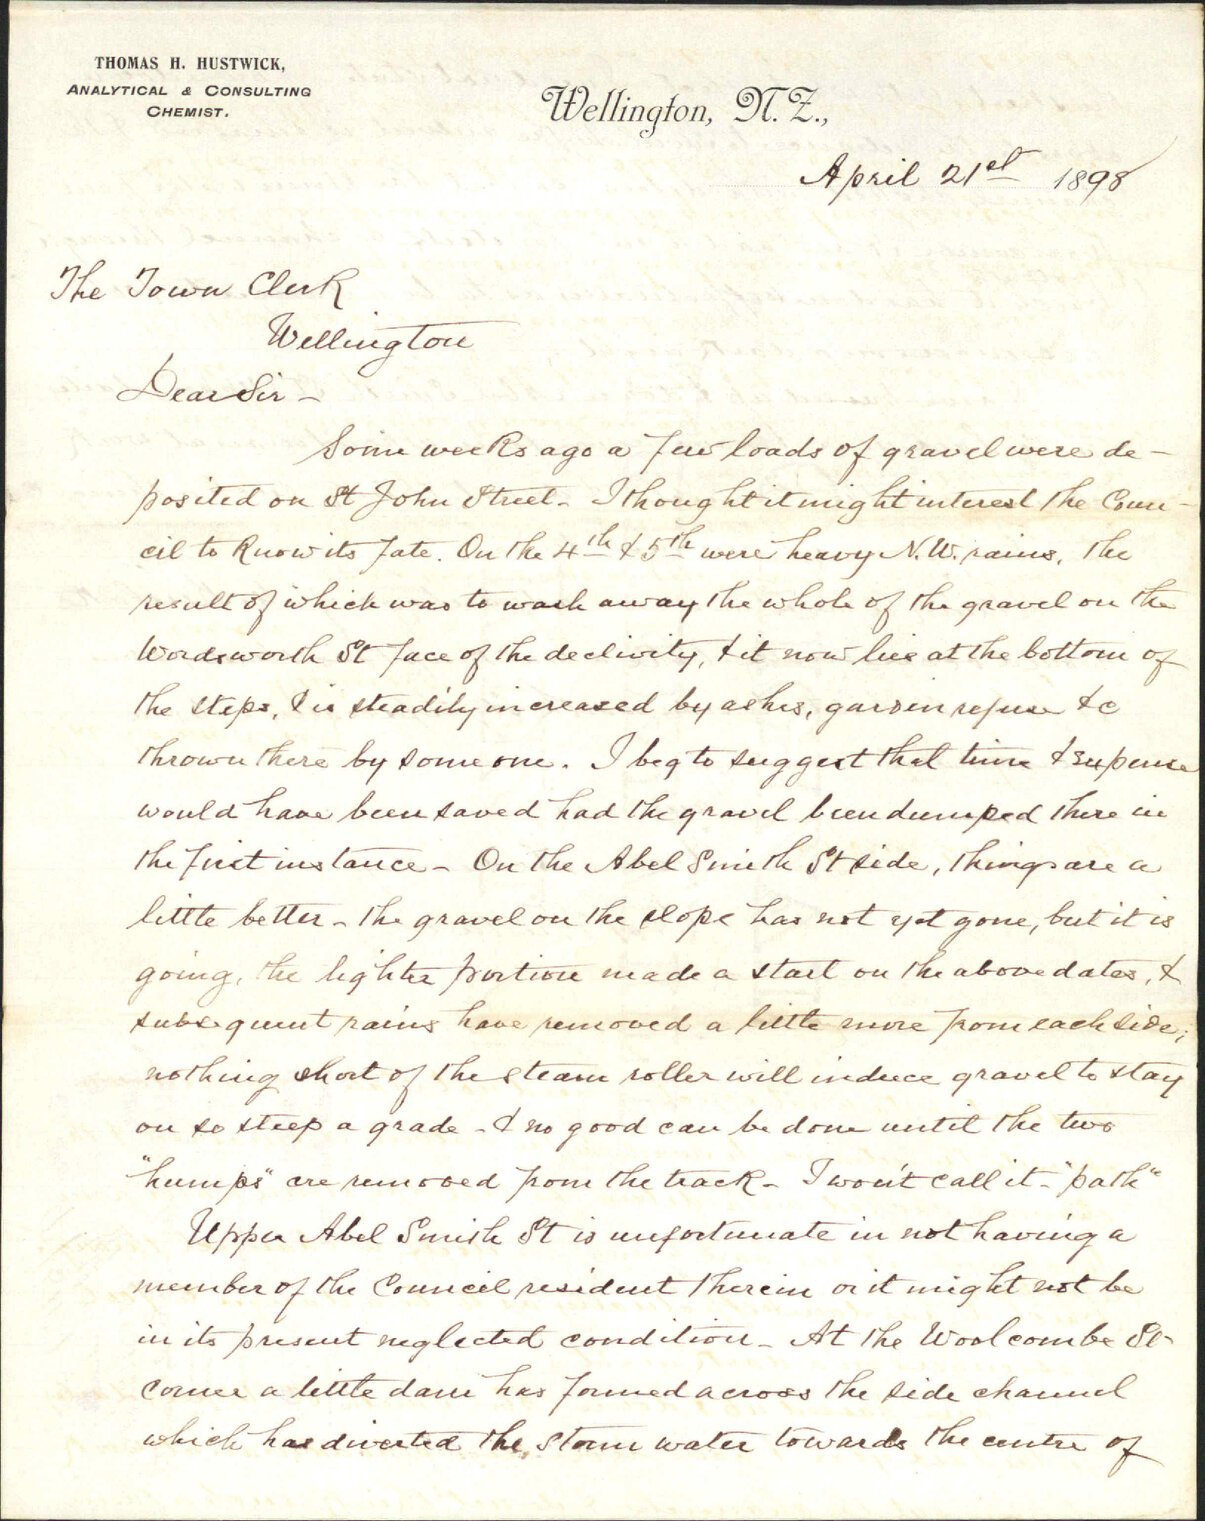 THOMAS H. HUSTWICK,
ANALYTICAL & CONSULTING
CHEMIST.
Wellington, N.Z.,
April 21st 1898
The Town Clerk
Wellington
Dear Sir –
Some weeks ago a few loads of gravel were de-
posited on St John Street – I thought it might interest the Coun-
cil to know its fate. On the 4th & 5th were heavy N.W. rains, the
result of which was to wash away the whole of the gravel on the
Wordsworth St face of the declivity, & it now lies at the bottom of
the steps, & is steadily increased by ashes, garden refuse &c
thrown there by some one. I beg to suggest that time & expense
would have been saved had the gravel been dumped there in
the first instance – On the Abel Smith St side, things are a
little better – the gravel on the slope has not yet gone, but it is
going, the lighter portion made a start on the above dates, &
subsequent rains have removed a little more from each side;
nothing short of the steam roller will induce gravel to stay
on so steep a grade – & no good can be done until the two
"humps" are removed from the track – I won't call it – "path"
Upper Abel Smith St is unfortunate in not having a
member of the Council resident therein or it might not be
in its present neglected condition – At the Woolcombe St
corner a little dam has formed across the side channel
which has diverted the storm water towards the centre of